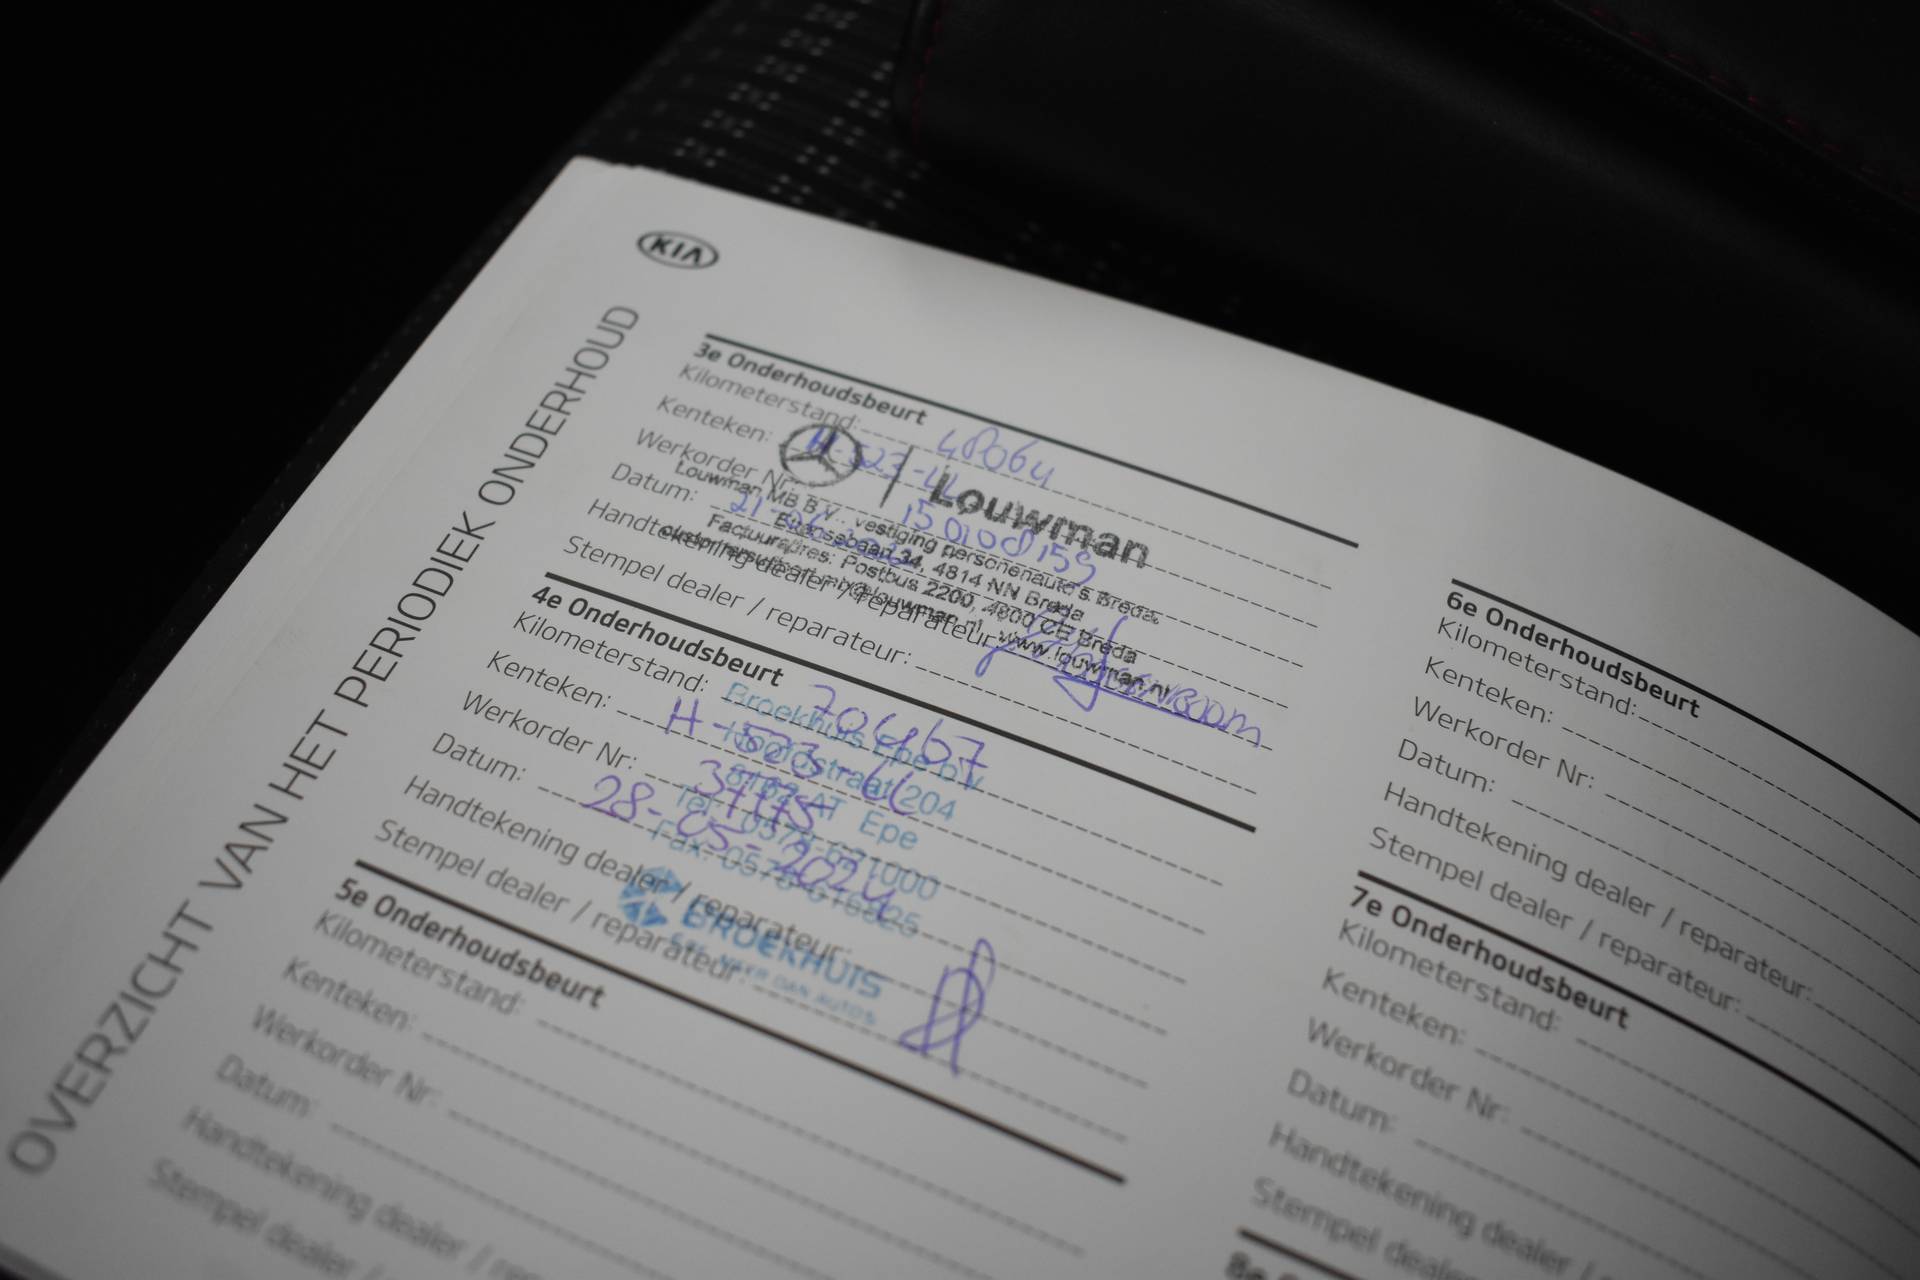 KIA
OVERZICHT VAN HET PERIODIEK ONDERHOUD
3e Onderhoudsbeurt
Kilometerstand: 48064
Kenteken: H-523-
Werkorder Nr.: 150108159
Datum: 21-06-
Handtekening dealer / reparateur:
Stempel dealer / reparateur:
Louwman
Louwman MB B.V., vestiging personenauto's Breda
34, 4814 NN Breda
Factuuradres: Postbus 2200, 4800 CE Breda
www.louwman.nl
4e Onderhoudsbeurt
Kilometerstand: 70467
Kenteken: H-523-
Werkorder Nr:
Datum: 28-05-2024
Handtekening dealer / reparateur:
Stempel dealer / reparateur:
Broekhuis Epe b.v
Hoofdstraat 204
AT Epe
Tel.
Fax:
BROEKHUIS
MEER DAN AUTO'S
5e Onderhoudsbeurt
Kilometerstand:
Kenteken:
Werkorder Nr:
Datum:
Handtekening dealer /
Stempel dealer /
6e Onderhoudsbeurt
Kilometerstand:
Kenteken:
Werkorder Nr:
Datum:
Handtekening dealer / reparateur:
Stempel dealer / reparateur:
7e Onderhoudsbeurt
Kilometerstand:
Kenteken:
Werkorder Nr:
Datum:
Handtekening dealer /
Stempel dealer
8e